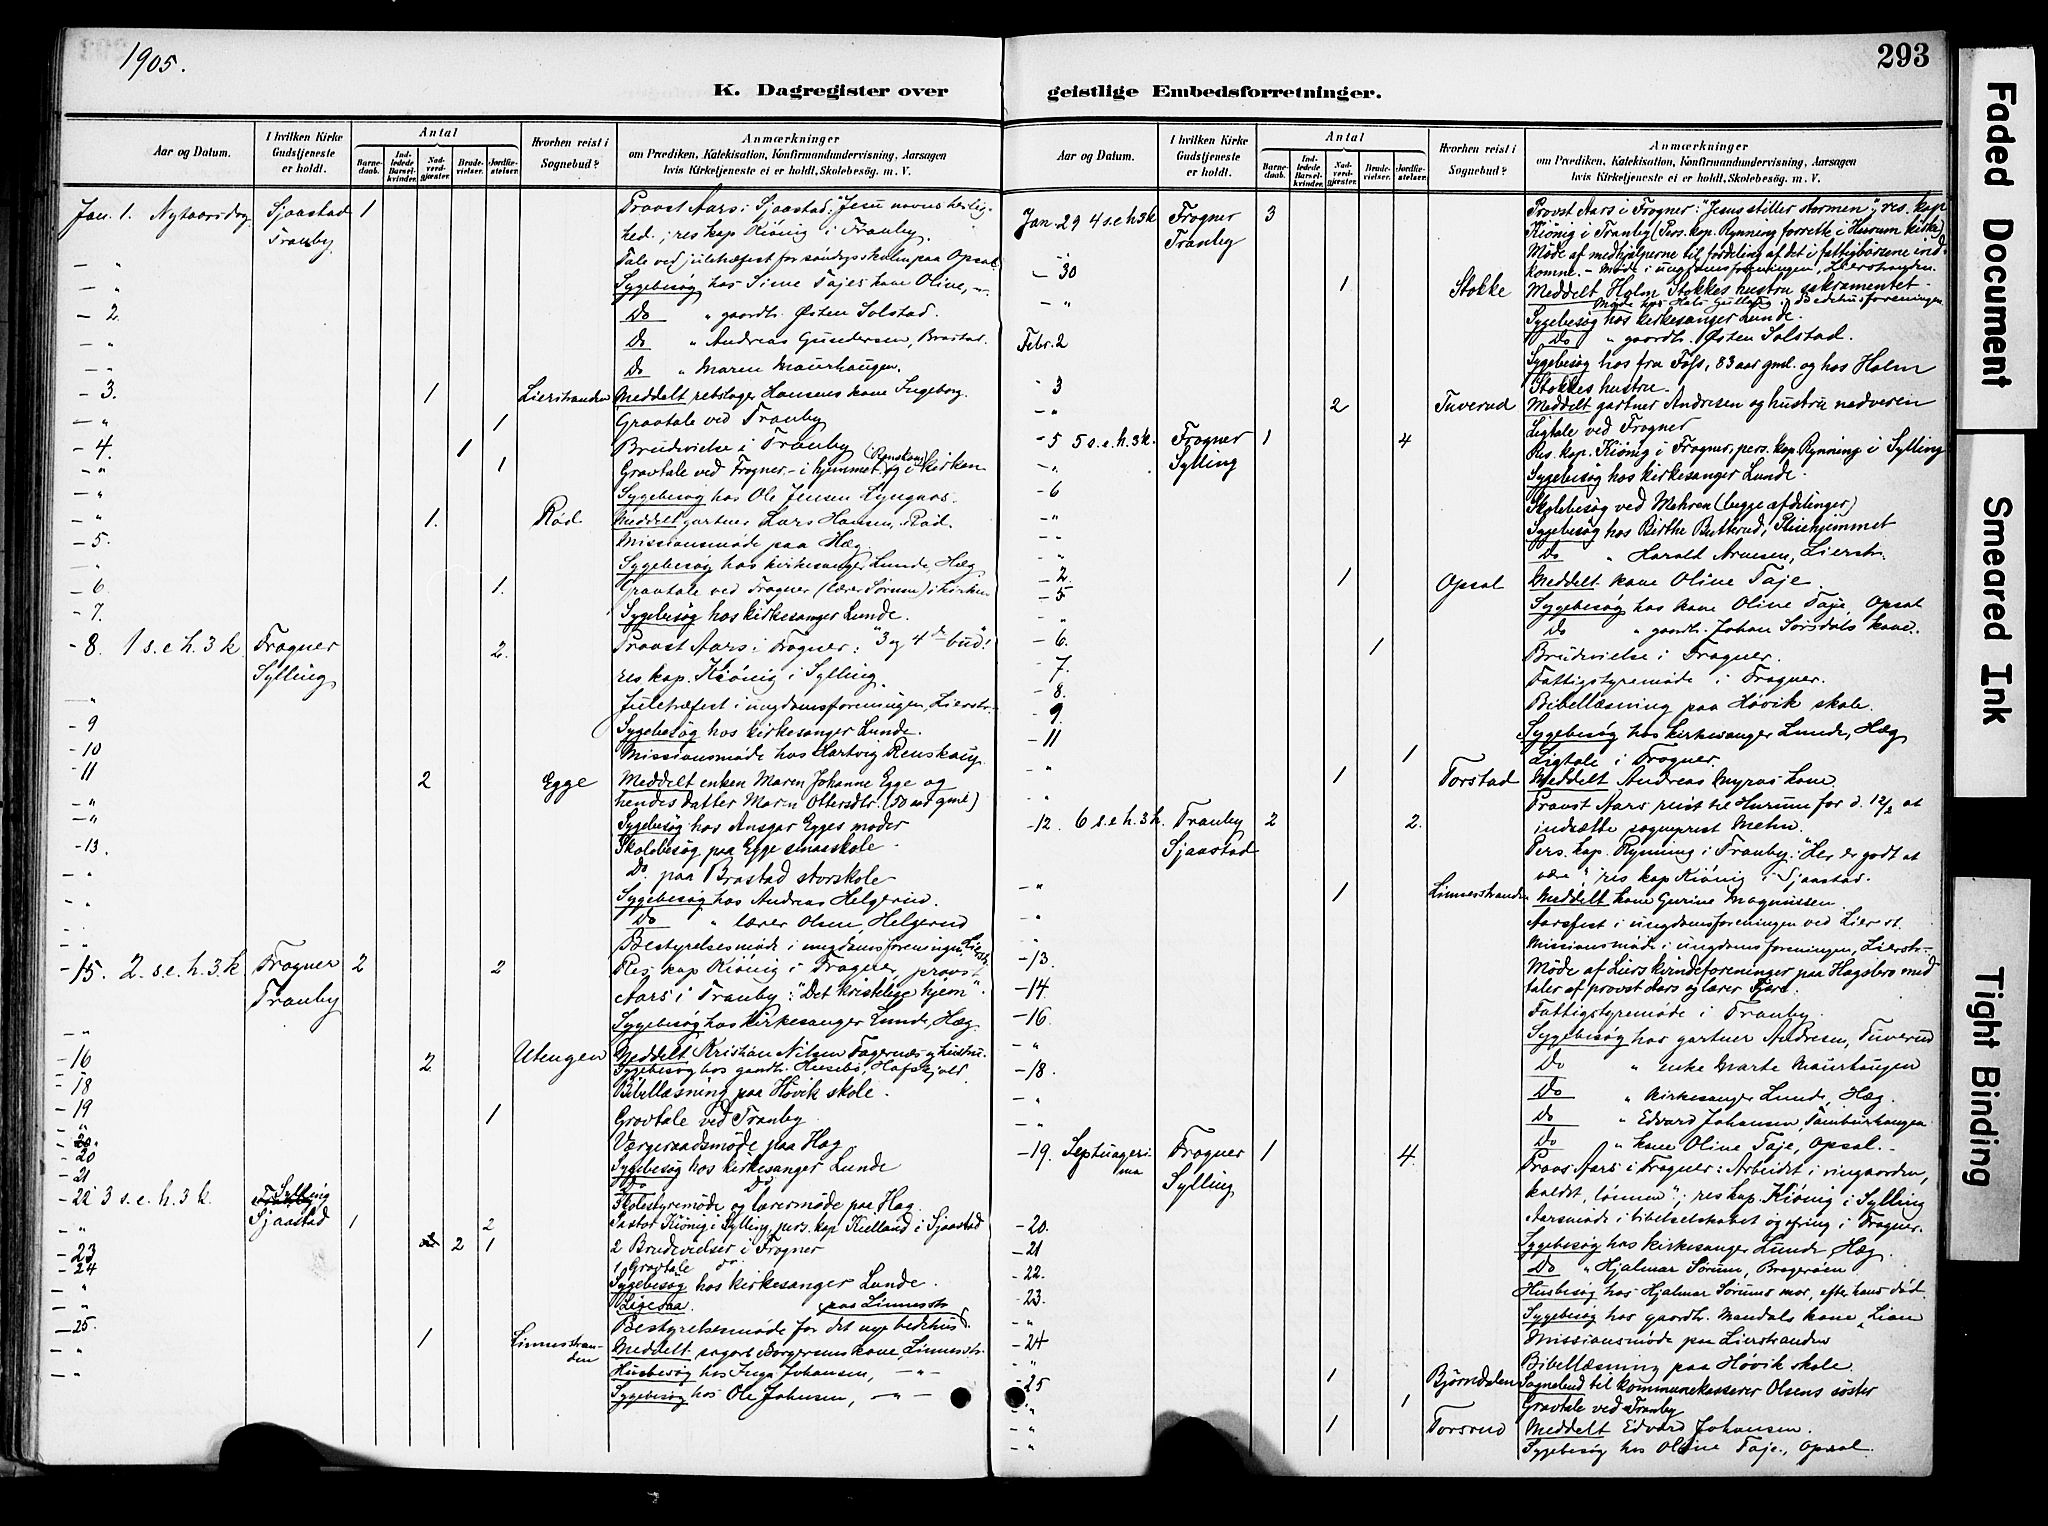 1905.
293
K. Dagregister over geistlige Embedsforretninger.
Aar og Datum.
I hvilken Kirke Gudstjeneste er holdt.
Antal
Barnedaab.
Indledede Barselkvinder.
Nadverdgjæster.
Brudevielser.
Jordfæstelser.
Hvorhen reist i Sognebud?
Anmærkninger
om Prædiken, Katekisation, Konfirmandundervisning, Aarsagen
hvis Kirketjeneste ei er holdt, Skolebesøg. m. V.
Jan. 1. Nytaarsdag Sjaastad 1 Provst Aars i Sjaastad: "Jesu navns hellig-
Tranby hed"; res kap Kiønig i Tranby.
— " Tale ved juletræfest for søndagsskolen paa Opsal
— " Sygebesøg hos Sivne Tajes kone Olive, —
— 2. Do " gaardbr. Østen Solstad.
— " Do " Andreas Gundersen, Brastad.
— " Do " Maren Maurhaugen.
— 3. 1 Lierstranden Meddelt rebslager Hansens kone Ingeborg.
— " 1 Gravtale ved Tranby
— 4. 1 Brudvielse i Tranby
— " 1 Gravtale ved Frogner - i hjemmet og i kirken (Renskoug)
— " Sygebesøg hos Ole Jensen Lyngaas.
— " 1. Rød Meddelt gartner Lars Hansen, Rød.
— 5. Missionsmøde paa Hæg
— " Sygebesøg hos kirkesanger Lunde, Hæg
— 6. 1. Gravtale ved Frogner (lærer Sørum) i kirken
— 7. Sygebesøg hos kirkesanger Lunde.
— 8. 1 s. e. h. 3 k. Frogner 2. Provst Aars i Frogner: "3 og 4de bud";
Sylling res. kap. Kiønig i Sylling.
— " Juletræfest i ungdomsforeningen, Lierstr.
— 9 Sygebesøg hos kirkesanger Lunde.
— 10 Missionsmøde hos Hartvig Renskaug
— 11 2 Egge Meddelt enken Maren Johanne Egge og
hendes datter Maren Ottersdtr. (50 aar gml)
— " Sygebesøg hos Ansgar Egges moder
— 13. Skolebesøg paa Egge smaaskole.
— " Do. paa Brastad storskole
— " Sygebesøg hos Andreas Helgerud.
— " Do " lærer Olsen, Helgerud
— " Bestyrelsesmøde i ungdomsforeningen, Lierstr.
— 15. 2. s. e. h. 3. k Frogner 2 2 Res. kap Kiønig i Frogner, provst
Tranby Aars i Tranby: "Det kristelige hjem".
— " Sygebesøg hos kirkesanger Lunde, Hæg.
— 16 2 Utengen Meddelt Kristian Nilsen Fagernæs og hustru.
Sygebesøg hos gaardbr. Husebø, Hafskjold
— 18 Bibellæsning paa Høvik skole.
— 19 1 Gravtale ved Tranby
— 20. Værgeraadsmøde paa Hæg
— 20 Sygebesøg hos kirkesanger Lunde
— 21 Do Do
Skolestyremøde og lærermøde paa Hæg.
— 22 3 s. e. h. 3 k. Sylling
Sjaastad 1 2 Pastor Kiønig i Sylling, pers. kap Kielland i Sjaastad
— 23 2 1 2 Brudevielser i Frogner
— 24 1 Gravtale do.
— " Sygebesøg hos kirkesanger Lunde.
— " Ligesaa. paa Linnesstr
— 25. Bestyrelsesmøde for det nye bedehus
— " 1 Linnesstranden Meddelt sagarb. Borgersens kone, Linnesstr.
— " Husbesøg hos Inga Johansen, — " —
Sygebesøg hos Ole Johnsen, — " —
Aar og Datum.
I hvilken Kirke Gudstjeneste er holdt.
Antal
Barnedaab.
Indledede Barselkvinder.
Nadverdgjæster.
Brudevielser.
Jordfæstelser.
Hvorhen reist i Sognebud?
Anmærkninger
om Prædiken, Katekisation, Konfirmandundervisning, Aarsagen
hvis Kirketjeneste ei er holdt, Skolebesøg. m. V.
Jan. 29 4 s. e. h. 3 k Frogner 3 Provst Aars i Frogner: "Jesus stiller stormen", res. kap
Tranby Kiønig i Tranby (Pers. kap. Rynning forrette i Hurum kirke)
— 30 Møde af medhjælperne til fordeling af det i fattigbøssene ind-
komne. - Møde i ungdomsforeningen, Lierstranden.
— " 1 Stokke Meddelt Holm Stokkes hustru sakramentet
Sygebesøg hos kirkesanger Lunde.
Febr. 2 Do " gaardbr. Østen Solstad.
Sygebesøg hos fru Foss, 83 aar gml. og hos Holm
— 3 Stokkes hustru.
— " 2 Tuverud Meddelt gartner Andresen og hustru nadveren
Ligtale ved Frogner
— 5 5 s. e. h. 3 k. Frogner 1 4 Res. kap. Kiønig i Frogner, pers. kap Rynning i Sylling
— " Sylling Sygebesøg hos kirkesanger Lunde.
— 6 Skolebesøg ved Mehren (begge afdelinger)
— " Sygebesøg hos Birthe Butterud, Pleiehjemmet
— " Do " Harald Arnesen, Lierstr.
— 2. 1 Opsal Meddelt kone Olive Taje
— 5 Sygebesøg hos kone Olive Taje, Opsal
— " Do " gaardbr. Johan Sørsdals kone.
— 6. 1 Brudevielse i Frogner.
— 7. Fattigstyremøde i Frogner.
— 8. Bibellæsning paa Høvik skole.
— 9. Sygebesøg hos kirkesanger Lunde, Hæg
— 11 1 Ligtale i Frogner.
— " 1 Torstad Meddelt Andreas Myras kone
— " Provst Aars reist til Hurum for d. 12/2 at
— 12. 6 s. e. h. 3 k. Tranby 2 2. indsætte sogneprest Mehn.
Sjaastad Pers. kap. Rynning i Tranby: "Her er godt at
være", res kap Kiønig i Sjaastad.
— " 1 Linnesstranden Meddelt kone Gurine Magnussen
— " Aarsfest i ungdomsforeningen ved Lier st.
— " Missionsmøde i ungdomsforeningen, Lierstr.
— 13. Møde af Liers kvindeforeninger paa Hagsbro med
— 14 taler af provst Aars og lærer Fjære.
— 16 Fattigstyremøde i Tranby.
— " Sygebesøg hos gartner Andresen, Tuverud
— 18. Do " enke Marte Maurhaugen
— " Do " kirkesanger Lunde, Hæg.
— " Do " Edvard Johansen, Tamburhaugen
Do " kone Olive Taje, Opsal.
— 19. Septuagesima Frogner 1 4. Provst Aars i Frogner: Arbeidet i vingaarden,
Sylling kaldet, lønnen"; res kap. Kiønig i Sylling
— 20. Aarsmøde i bibelselskabet og ofring i Frogner.
— 21 Sygebesøg hos kirkesanger Lunde Hæg.
— 22. Do " Hjalmar Sørum, Bragerøen
— 23. Husbesøg hos Hjalmar Sørums mor, efter hans død
— " Sygebesøg hos gaardbr. Mandals kone, Lian
— 24 Missionsmøde paa Lierstranden
— " Bibellæsning paa Høvik skole.
— 25 1 Bjørndalen Sognebud til kommunekasserer Olsens søster
— " 1 Gravtale ved Tranby
— " 1 Torsrud Meddelt Edvard Johansen.
— " Sygebesøg hos Olive Taje, Opsal.
Faded Document
Smeared Ink
Tight Binding